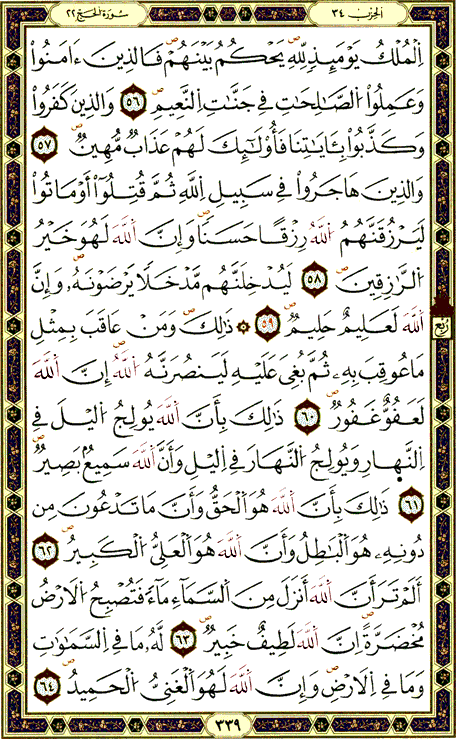 سورة الحج ٢٢
الحزب ٣٤
اِ۬لْمُلْكُ يَوْمَئِذٍ لِّلهِ يَحْكُمُ بَيْنَهُمْ فَالذِينَ ءَامَنُواْ
وَعَمِلُواْ اُ۬لصَّالِحَاتِ فِي جَنَّاتِ اِ۬لنَّعِيمِ ٥٦ وَالذِينَ كَفَرُواْ
وَكَذَّبُواْ بِـَٔايَاتِنَا فَأُوْلَٰٓئِكَ لَهُمْ عَذَابٌ مُّهِينٌ ٥٧
وَالذِينَ هَاجَرُواْ فِي سَبِيلِ اِ۬للَّهِ ثُمَّ قُتِلُوٓاْ أَوْ مَاتُواْ
لَيَرْزُقَنَّهُمُ اُ۬للَّهُ رِزْقًا حَسَنًا وَإِنَّ اَ۬للَّهَ لَهُوَ خَيْرُ
اُ۬لرَّٰزِقِينَ ٥٨ لَيُدْخِلَنَّهُم مَّدْخَلًا يَرْضَوْنَهُۥ وَإِنَّ
اَ۬للَّهَ لَعَلِيمٌ حَلِيمٌ ٥٩ ۞ ذَٰلِكَ وَمَنْ عَاقَبَ بِمِثْلِ
مَا عُوقِبَ بِهِۦ ثُمَّ بُغِيَ عَلَيْهِ لَيَنصُرَنَّهُ اُ۬للَّهُ إِنَّ اَ۬للَّهَ
لَعَفُوٌّ غَفُورٌ ٦٠ ذَٰلِكَ بِأَنَّ اَ۬للَّهَ يُولِجُ اُ۬ليْلَ فِي
اِ۬لنَّهارِ وَيُولِجُ اُ۬لنَّهَارَ فِي اِ۬ليْلِ وَأَنَّ اَ۬للَّهَ سَمِيعٌۢ بَصِيرٌ
٦١ ذَٰلِكَ بِأَنَّ اَ۬للَّهَ هُوَ اَ۬لْحَقُّ وَأَنَّ مَا تَدْعُونَ مِن
دُونِهِۦ هُوَ اَ۬لْبَٰطِلُ وَأَنَّ اَ۬للَّهَ هُوَ اَ۬لْعَلِيُّ اُ۬لْكَبِيرُ ٦٢
أَلَمْ تَرَ أَنَّ اَ۬للَّهَ أَنزَلَ مِنَ اَ۬لسَّمَآءِ مَآءً فَتُصْبِحُ اُ۬لَارْضُ
مُخْضَرَّةً اِنَّ اَ۬للَّهَ لَطِيفٌ خَبِيرٌ ٦٣ لَّهُۥ مَا فِي اِ۬لسَّمَٰوَٰتِ
وَمَا فِي اِ۬لَارْضِ وَإِنَّ اَ۬للَّهَ لَهُوَ اَ۬لْغَنِيُّ اُ۬لْحَمِيدُ ٦٤
ربع
٣٣٩